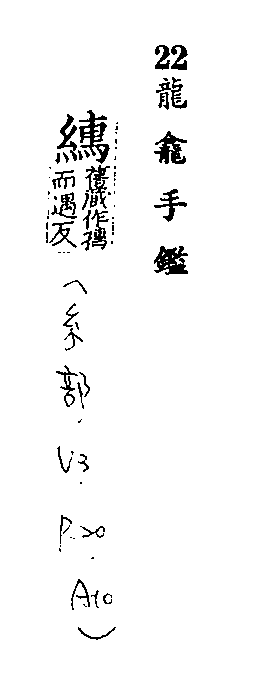 22龍龕手鑑
舊藏作
而遇反
(糸部.V3.P.20.A10)